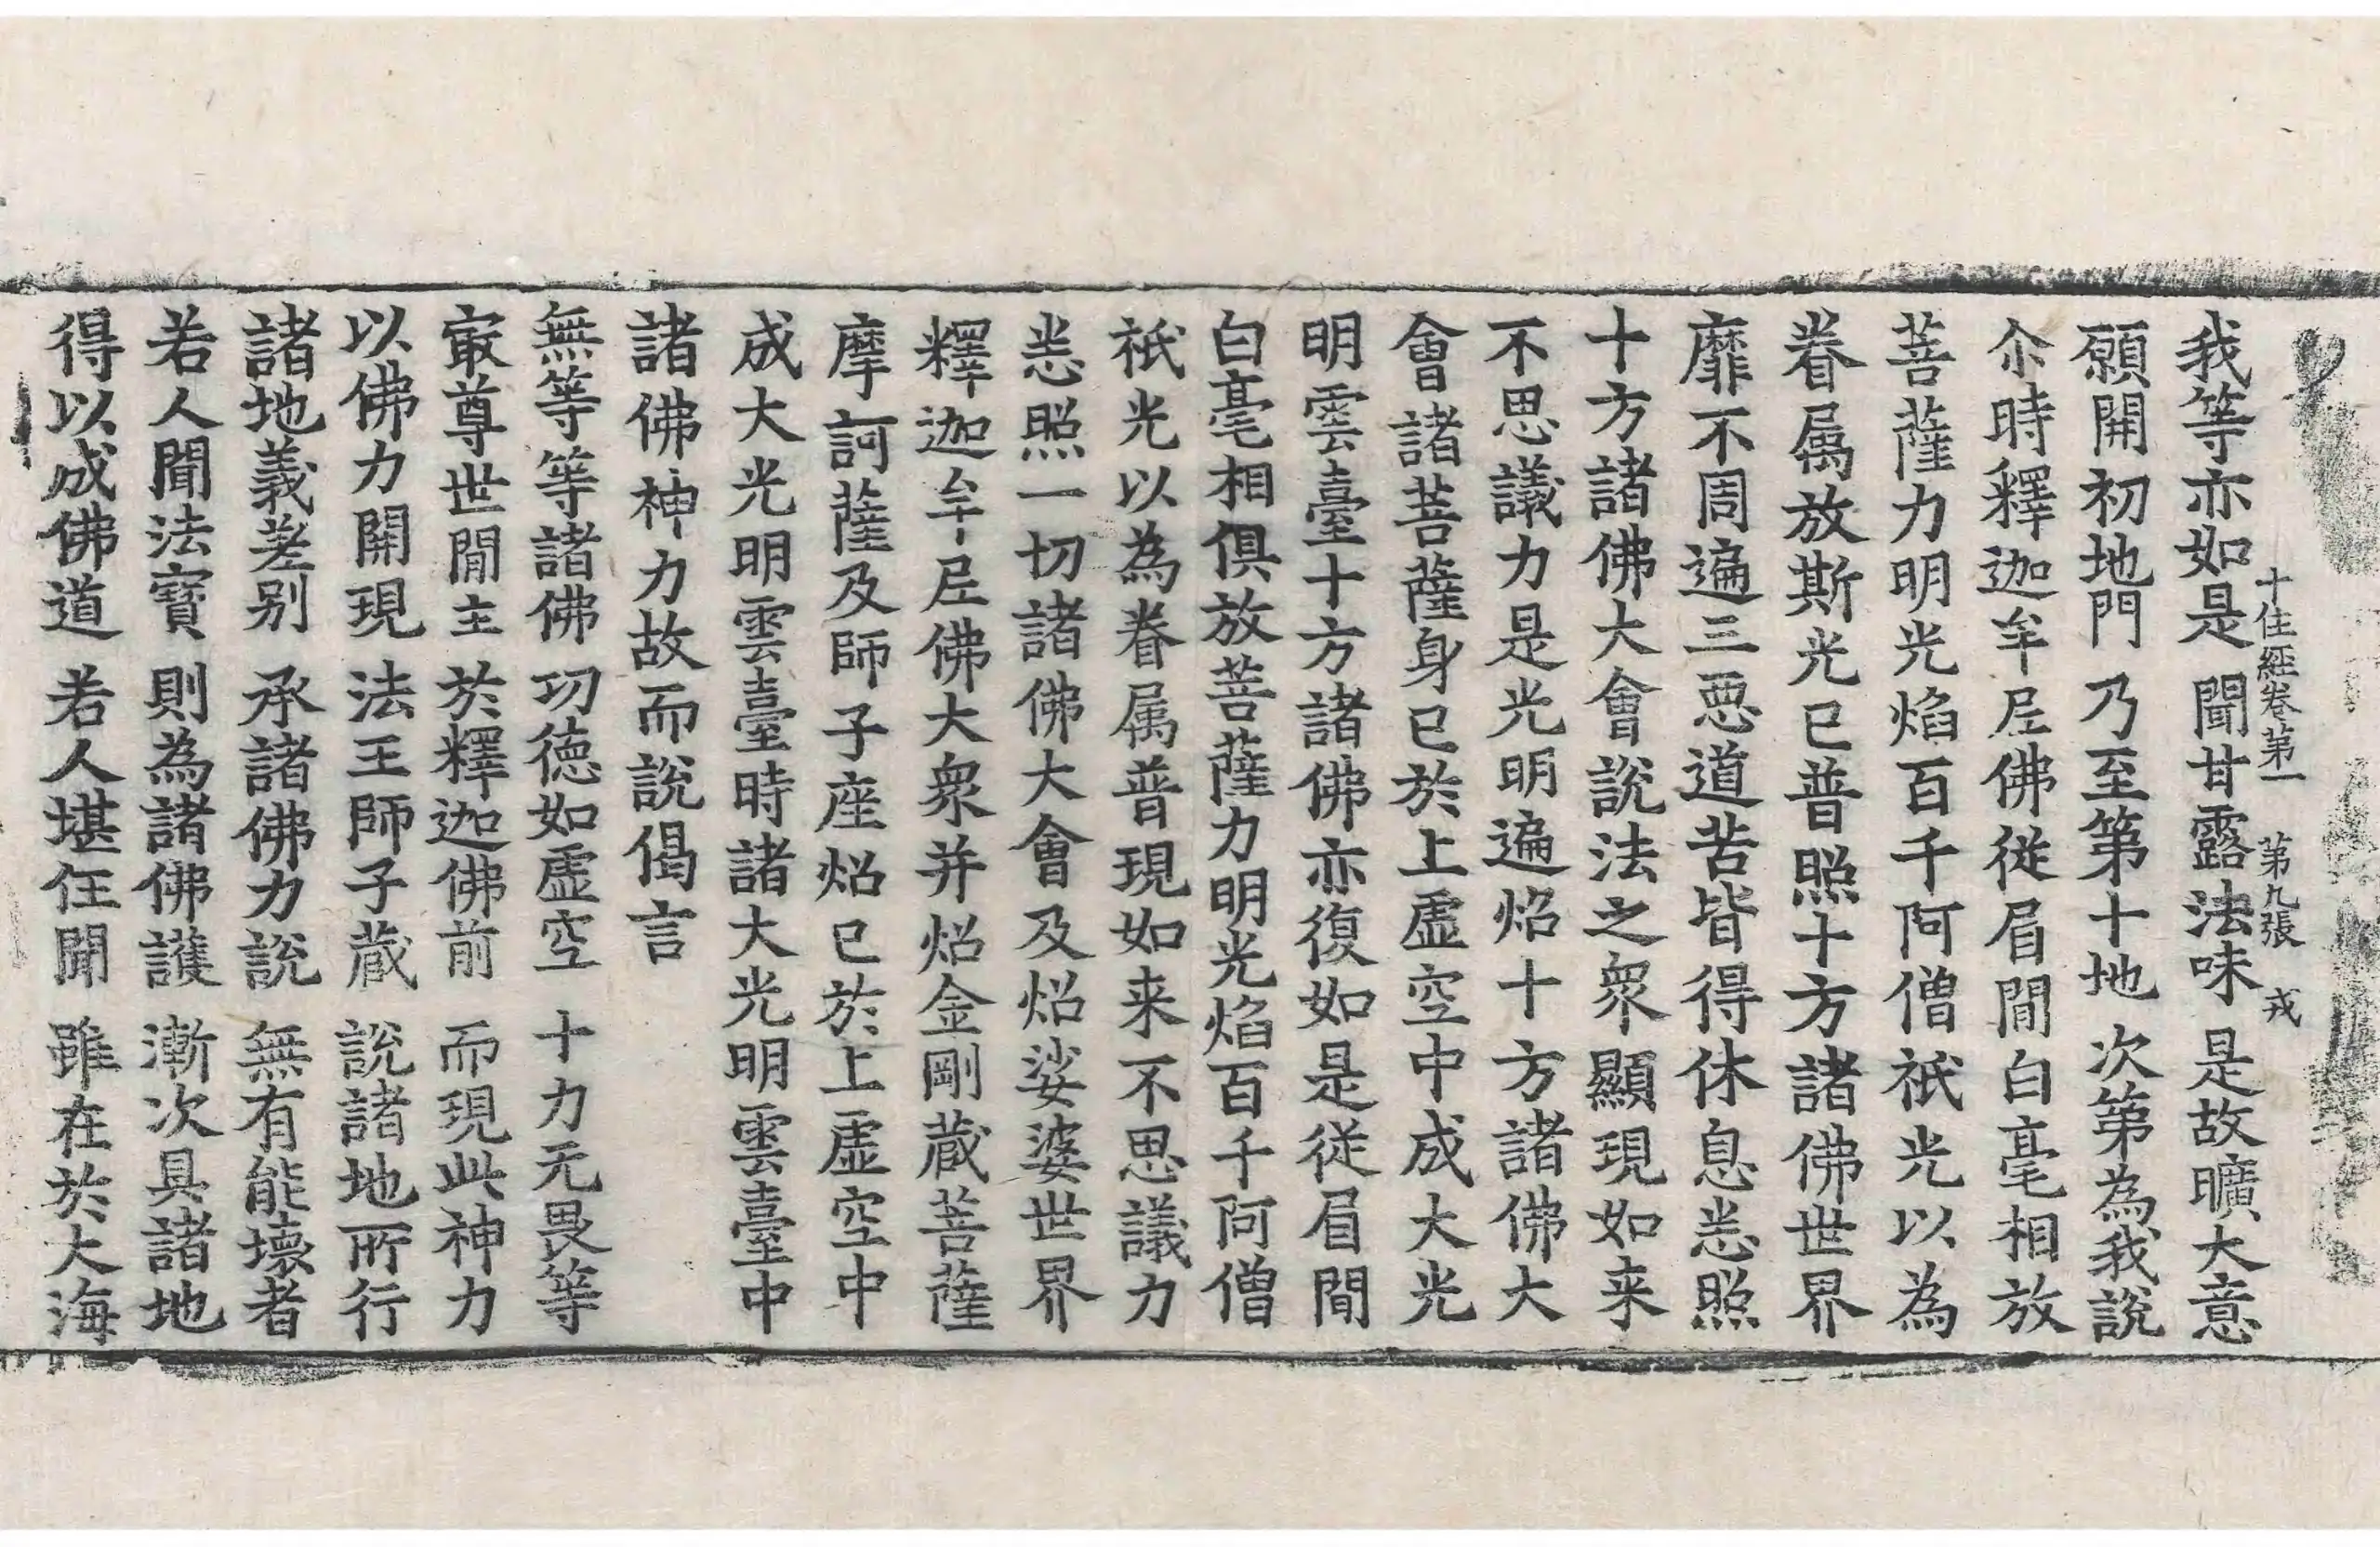 十住經卷第一 第九張 戎
我等亦如是 聞甘露法味 是故曠大意
願開初地門 乃至第十地 次第為我說
尒時釋迦牟尼佛從眉間白毫相放
菩薩力明光焰百千阿僧祇光以為
眷属放斯光已普照十方諸佛世界
靡不周遍三惡道苦皆得休息悉照
十方諸佛大會說法之衆顯現如来
不思議力是光明遍炤十方諸佛大
會諸菩薩身已於上虛空中成大光
明雲臺十方諸佛亦復如是從眉間
白毫相俱放菩薩力明光焰百千阿僧
祇光以為眷属普現如来不思議力
悉照一切諸佛大會及炤娑婆世界
釋迦牟尼佛大衆并炤金剛蔵菩薩
摩訶薩及師子座炤已於上虛空中
成大光明雲臺時諸大光明雲臺中
諸佛神力故而說偈言
無等等諸佛 功德如虛空 十力无畏等
㝡尊世間主 於釋迦佛前 而現此神力
以佛力開現 法王師子蔵 說諸地所行
諸地義差別 承諸佛力說 無有能壞者
若人聞法寶 則為諸佛護 漸次具諸地
得以成佛道 若人堪任聞 雖在於大海